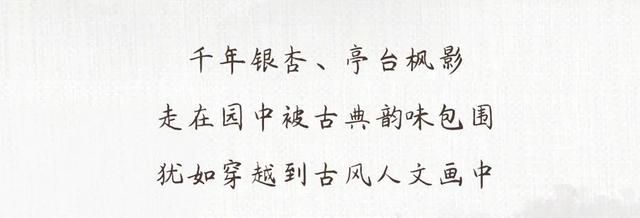 千年银杏、亭台枫影
走在园中被古典韵味包围
犹如穿越到古风人文画中